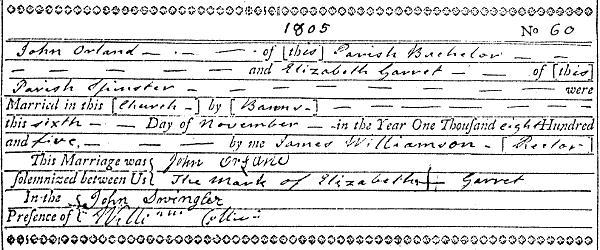 1805 No 60
John Orland — — — of [this] Parish Bachelor — —
— — — — — and Elizabeth Garret — — of [this]
Parish Spinster — — — — — were
Married in this [Church —] by [Banns —] — — — —
this sixth — — Day of November — in the Year One Thousand eight Hundred
and five. — — — by me James Williamson — [Rector]
This Marriage was John Orland
solemnized between Us The Mark of Elizabeth + Garret
In the John Swingler
Presence of William Collins